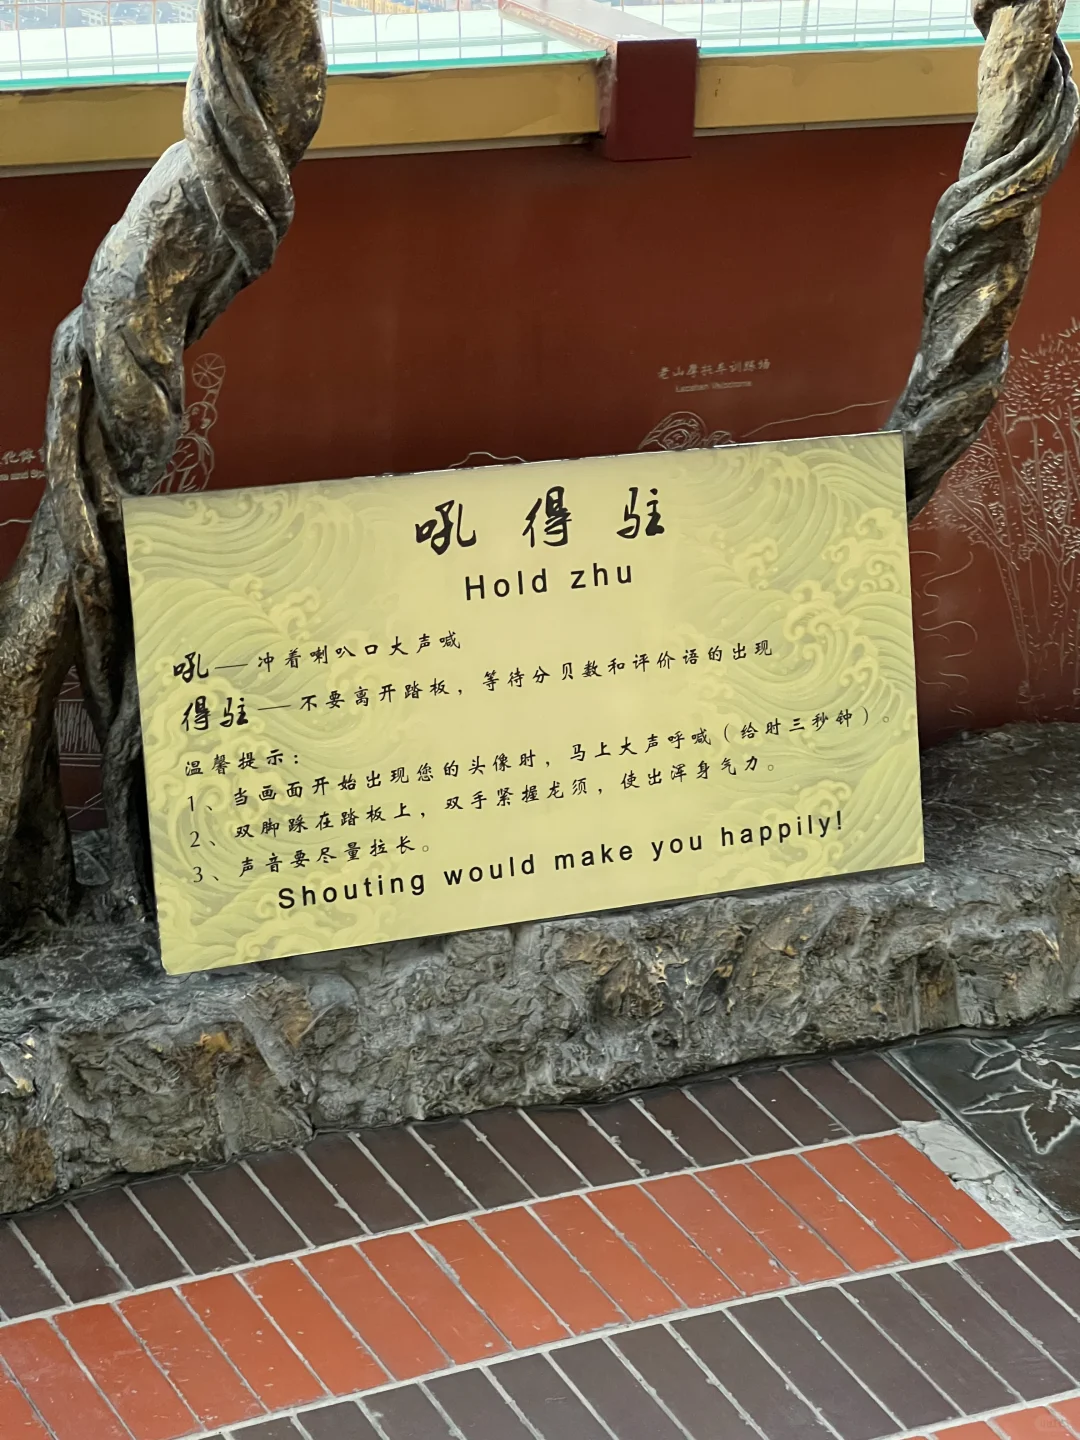 老山摩托车训练场
Laoshan Velodrome
吼得驻
Hold zhu
吼——冲着喇叭口大声喊
得驻——不要离开踏板，等待分贝数和评价语的出现
温馨提示：
1、当画面开始出现您的头像时，马上大声呼喊（给时三秒钟）。
2、双脚踩在踏板上，双手紧握龙须，使出浑身气力。
3、声音要尽量拉长。
Shouting would make you happily!